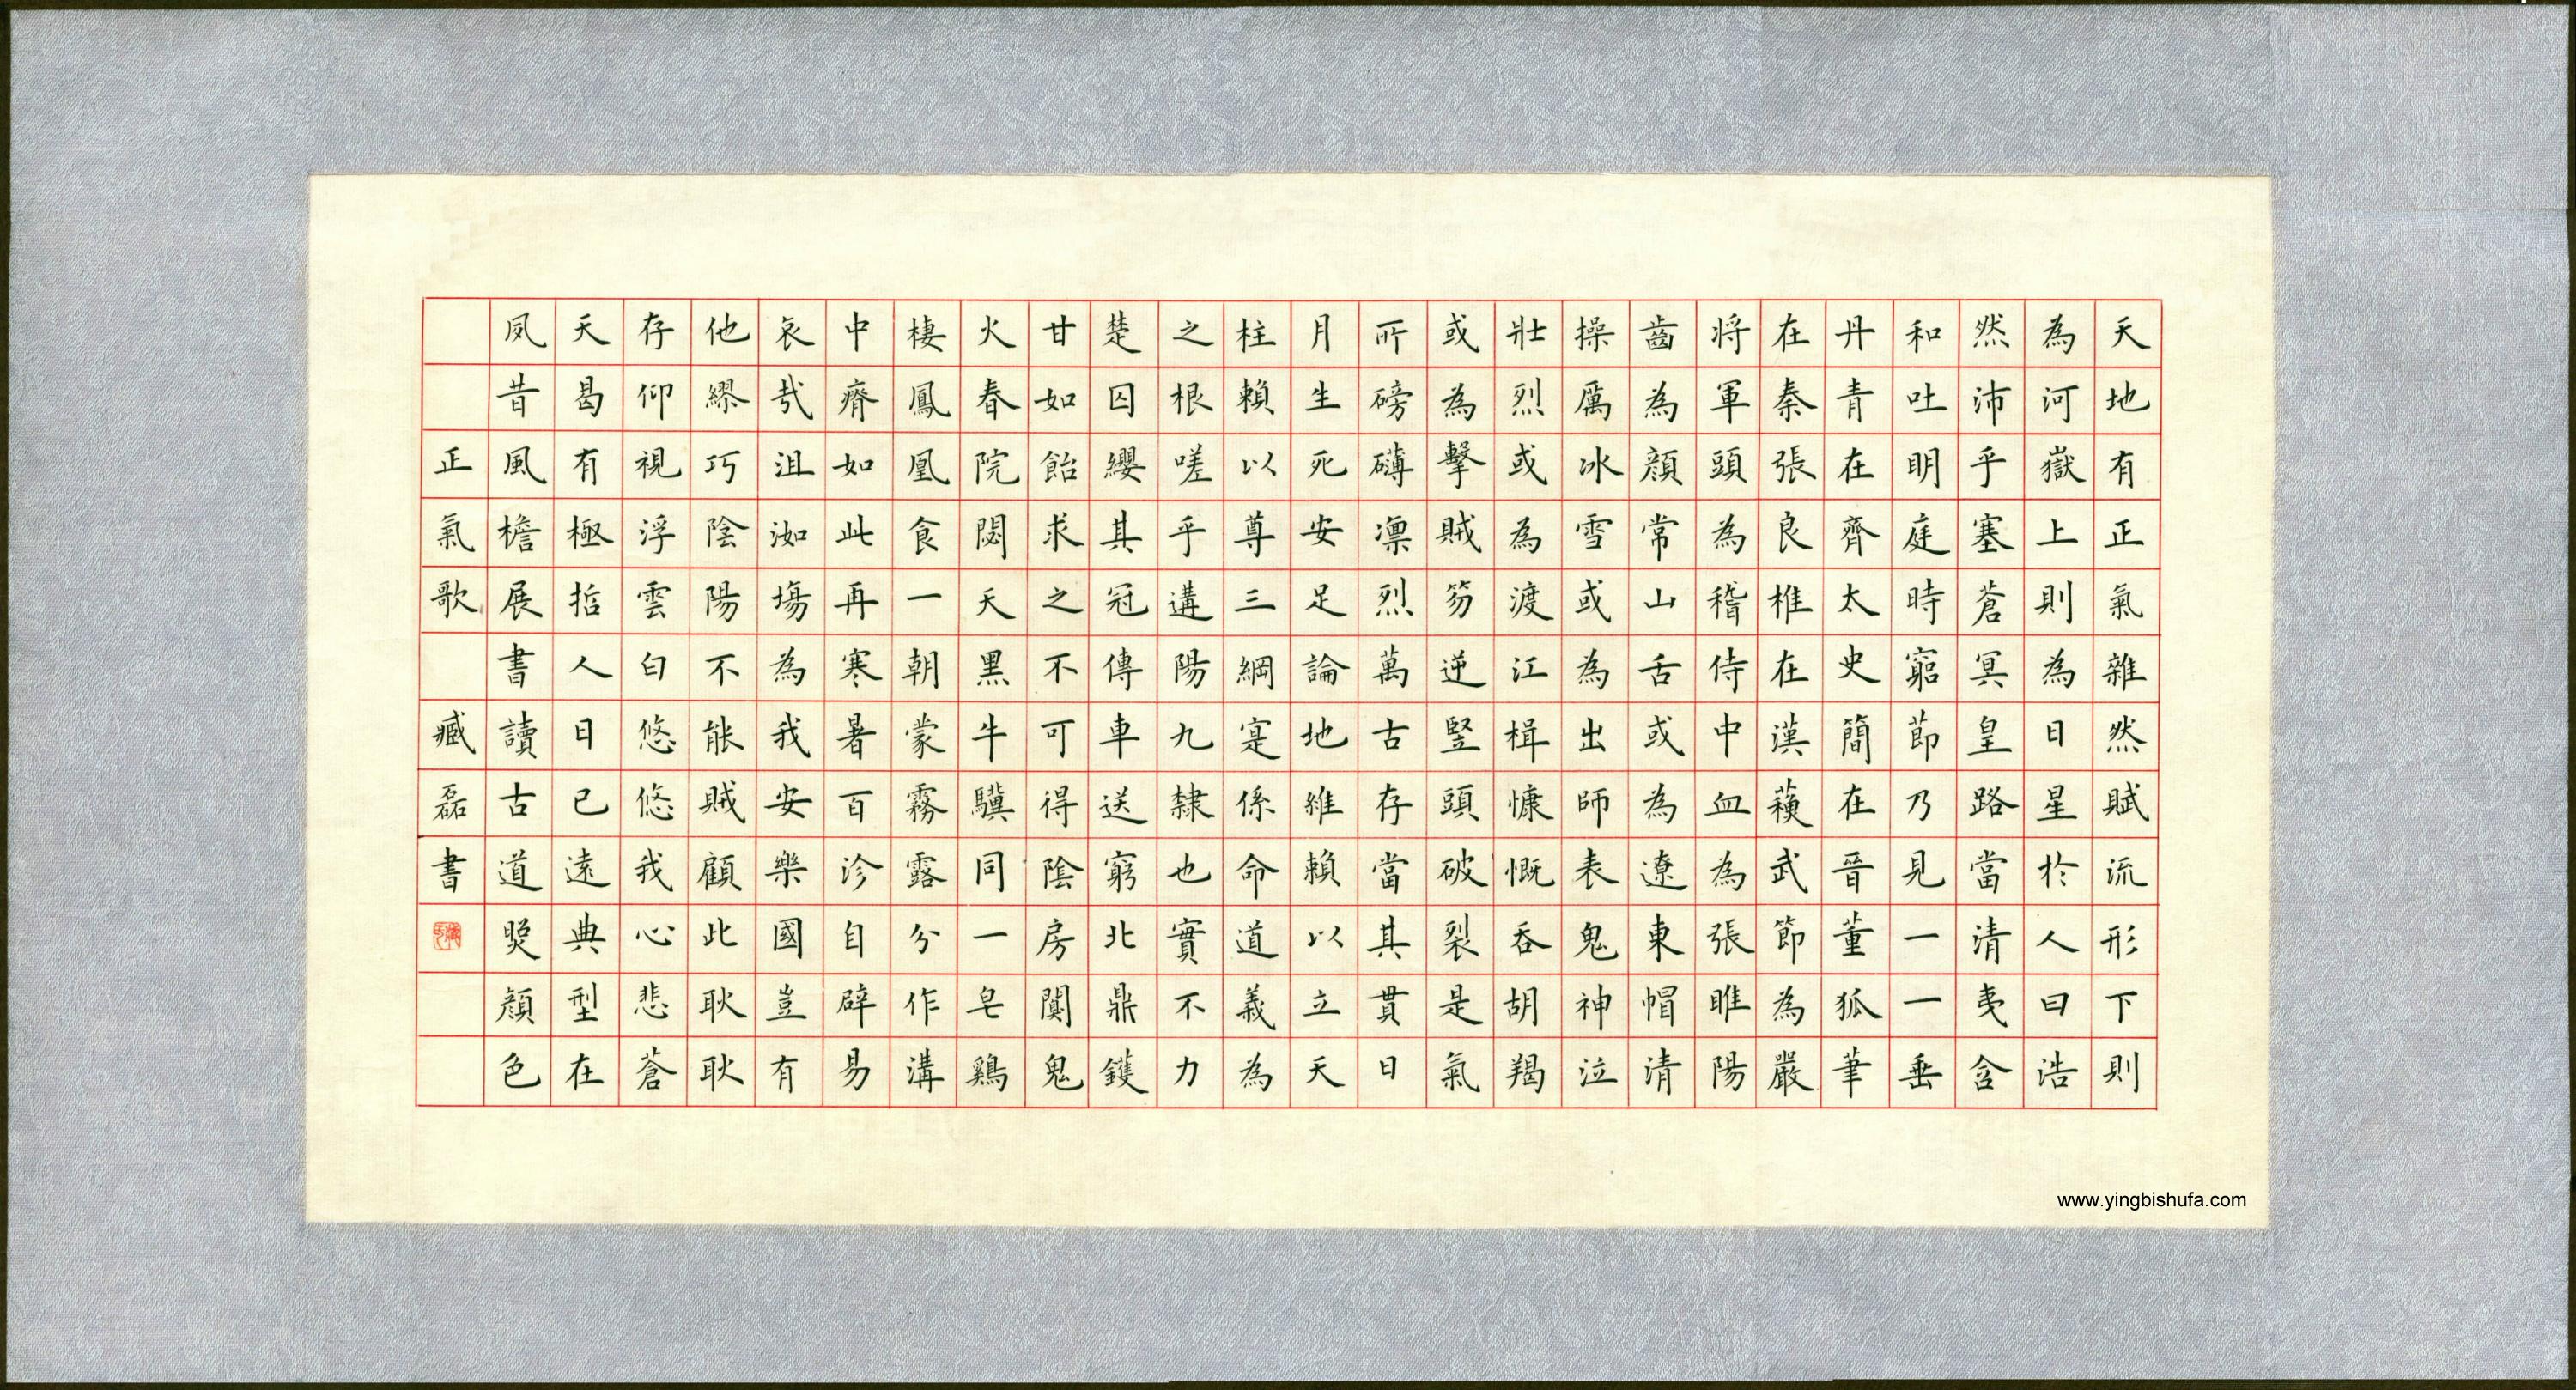 天地有正氣雜然賦流形下則
為河嶽上則為日星於人曰浩
然沛乎塞蒼冥皇路當清夷含
和吐明庭時窮節乃見一一垂
丹青在齊太史簡在晉董狐筆
在秦張良椎在漢蘇武節為嚴
将軍頭為稽侍中血為張睢陽
齒為顏常山舌或為遼東帽清
操厲冰雪或為出師表鬼神泣
壯烈或為渡江楫慷慨吞胡羯
或為擊賊笏逆豎頭破裂是氣
所磅礴凛烈萬古存當其貫日
月生死安足論地維賴以立天
柱賴以尊三綱寔係命道義為
之根嗟乎遘陽九隸也實不力
楚囚纓其冠傳車送窮北鼎鑊
甘如飴求之不可得陰房闃鬼
火春院閟天黑牛驥同一皂鷄
棲鳳凰食一朝蒙霧露分作溝
中瘠如此再寒暑百沴自辟易
哀哉沮洳場為我安樂國豈有
他繆巧陰陽不能賊顧此耿耿
存仰視浮雲白悠悠我心悲蒼
天曷有極哲人日已遠典型在
夙昔風檐展書讀古道煚顏色
正氣歌 臧磊書
www.yingbishufa.com